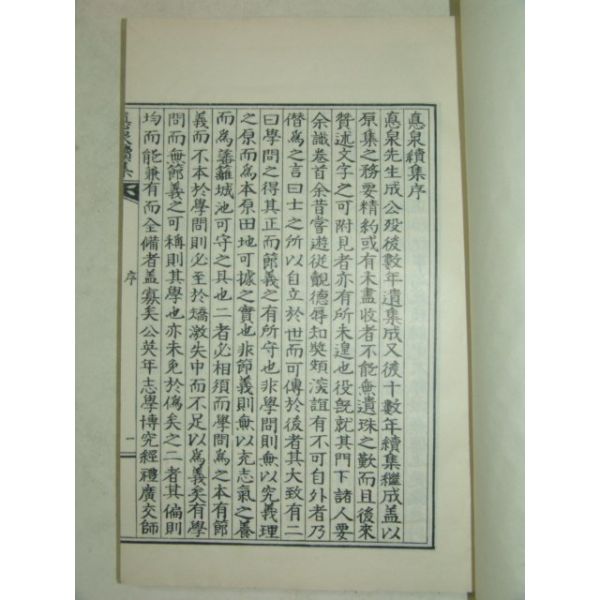 悳泉續集序
悳泉先生成公歿後數年遺集成又後十數年續集繼成盖以
原集之務要精約或有未盡收者不能無遺珠之歎而且後來
贊述文字之可附見者亦有所未遑也役旣就其門下諸人要
余識卷首余昔嘗遊從覿德辱知奬頗深誼有不可自外者乃
僭爲之言曰士之所以自立於世而可傳於後者其大致有二
曰學問之得其正而節義之有所守也非學問則無以究義理
之原而爲本原田地可據之實也非節義則無以充志氣之養
而爲藩籬城池可守之具也二者必相須而學問爲之本有節
義而不本於學問則必至於矯激失中而不足以爲義矣有學
問而無節義之可稱則其學也亦未免於僞矣之二者其偏則
均而能兼有而全備者盖寡矣公英年志學博究經禮廣交師
悳泉續集
序
一